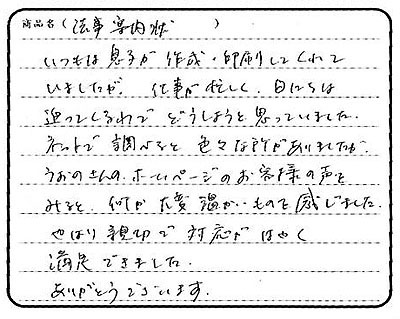 商品名(法事案内状)
いつもは息子が作成・印刷してくれて
いましたが、仕事が忙しく、日にちは
迫ってくるわで どうしようと思っていました。
ネットで調べると色々な所がありましたが、
うおのさんのホームページのお客様の声を
みると、何か大変温かいものを感じました。
やはり親切で対応がはやく
満足できました。
ありがとうございます。